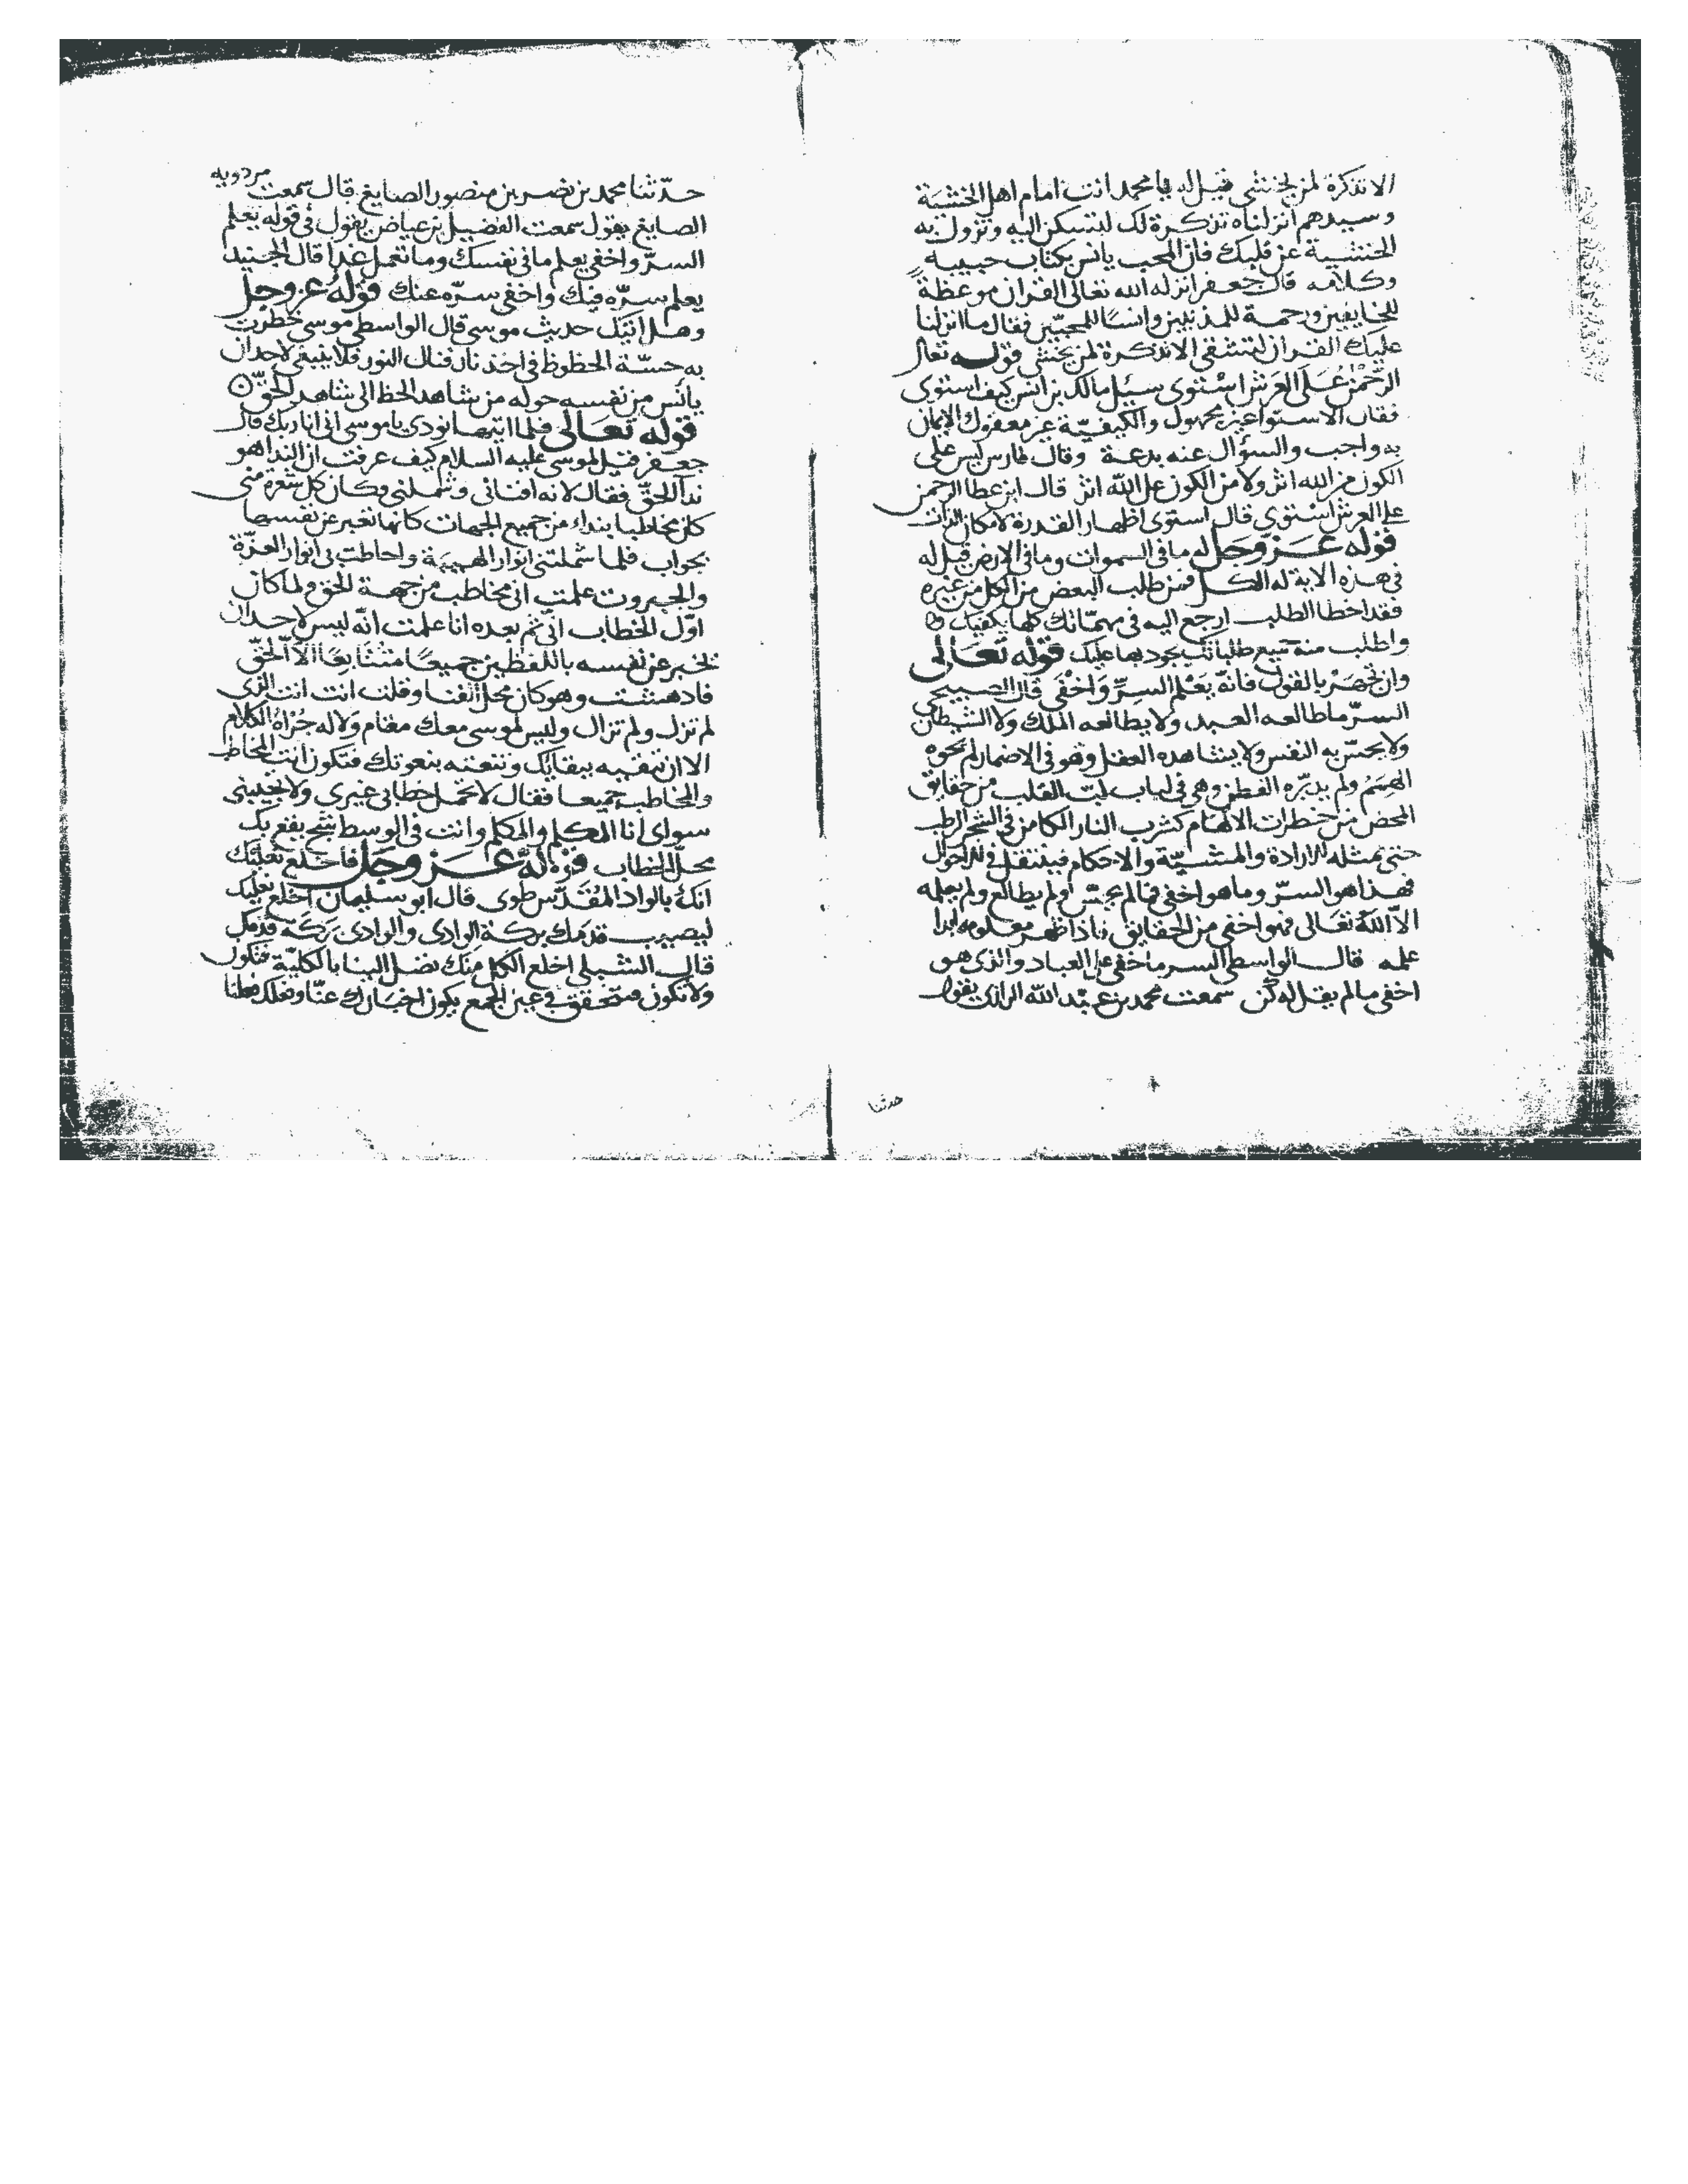 الا تذكرة لمن يخشى قيل له يا محمد انت امام اهل الخشية
وسيدهم انزلناه تذكرة لك لتسكن اليه وتزول به
الخشية عن قلبك فان المحب يانس بكتاب حبيبه
وكلامه قال جعفر انزله الله تعالى القران موعظة
للخايفين ورحمة للمذنبين وانسًا للمحبّين فقال ما انزلنا
عليك القران لتشقى الا تذكرة لمن يخشى قوله تعالى
الرحمن على العرش استوى سيئل مالك بن انس كيف استوى
فقال الاستوا غير مجهول والكيفيّة غير معقول الايمان
به واجب والسؤال عنه بدعة وقال فارس ليس على
الكون من الله اثر ولا من الكون على الله اثر قال ابن عطا الرحمن
على العرش استوى قال استوى اظهار القدرة لا مكان الذات
قوله عز وجل له ما فى السموات وما فى الارض قيل له
فى هذه الاية له الكل فمن طلب البعض من الكل من غيره
فقد اخطا الطلب ارجع اليه فى مهمّاتك كلها يكفيك
واطلب منه جميع طلباتك يجود بها عليك قوله تعالى
وان تجهر بالقول فانّه يعلم السرّ واخفى قال الصبيحى
السرّ ما طالعه العبد ولا يطالعه الملك ولا الشيطان
ولا يحسّ به النفس ولا يشاهده العقل وهو فى الاضمار لم تحوه
الهمم ولم يدبّره الفطن وهى فى لباب لبّ القلب من حقايق
المحض من خطرات الالهام كشرب النار الكامن فى الشجر الرطب
حتى تمثله الارادة والمشيّة والاحكام فينتقل فى الاحوال
فهذا هو السرّ وما هو اخفى فما لم يحسّ ولم يطالع ولم يعلمه
الا الله تعالى فهو اخفى من الحقايق فاذا ظهر معلومه بدا
علمه قال الواسطى السر ما خفى على العباد والذى هو
اخفى ما لم يقل له كن سمعت محمد بن عبد الله الرازى يقول
حدثنا
حدّثنا محمد بن نصر بن منصور الصايغ قال سمعت مردويه
الصايغ يقول سمعت الفضيل بن عياض يقول فى قوله يعلم
السرّ واخفى يعلم ما فى نفسك وما تعمل غدا قال الجنيد
يعلم سرّه فيك واخفى سرّه عنك قوله عز وجل
وهل اتيك حديث موسى قال الواسطى موسى خطرت
به حسّة الحظوظ فى اخذ نار فنال النور فلا ينبغى لاحد ان
يائس من نفسه حوله من شاهد الحظ الى شاهد الحقّ
قوله تعالى فلما اتيها نودى يا موسى انى انا ربك قال
جعفر قيل لموسى عليه السلام كيف عرفت ان الندا هو
ندا الحقّ فقال لانه افنانى وشملنى وكان كل شعرة منى
كان مخاطبا بنداء من جميع الجهات كانها تعبر عن نفسها
بجواب فلما شملتنى انوار الهيبة واحاطت بى انوار العزّة
والجبروت علمت انى مخاطب من جهة الحق ولما كان
اوّل الخطاب انّى ثم بعده انا علمت انّه ليس لاحد ان
يخبر عن نفسه باللفظين جميعًا متتابعًا الّا الحقّ
فادهشت وهو كان محل الفنا وقلت انت انت الذى
لم تزل ولم تزال وليس لموسى معك مقام ولا له جُراة الكلام
الا ان تبقيه ببقايك وتنعته بنعوتك فتكون انت المخاطِب
والمخاطب جميعا فقال لا تحمل خطابى غيرى ولا تجيبنى
سواى انا المكلم والمكلم وانت فى الوسط شبح يقع بك
محلّ الخطاب قوله عز وجل فاخلع نعليك
انك بالواد المقدّس طوى قال ابو سليمان اخلع نعليك
ليصيب قدمك بركة الوادى والوادى بركة قدمك
قال الشبلى اخلع الكل منك تصل الينا بالكليّة فتكون
ولا تكون فتحقق فى عين الجمع يكون اخبارك عنّا وفعلك فعلنا